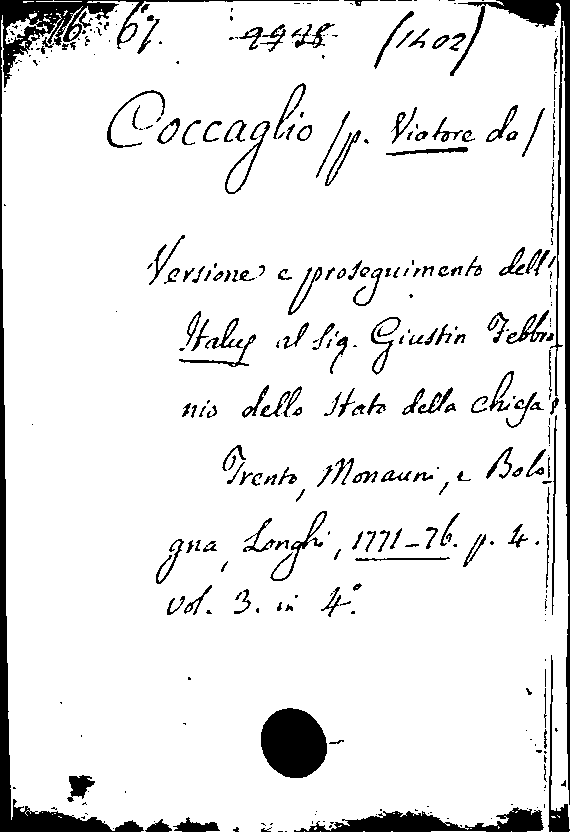 16 67. 9938 (1402)
Coccaglio /p. Viatore da/
Versione e proseguimento dell'
Italus al Sig. Giustin Febbro-
nio dello Stato della Chiesa
Trento, Monauni, e Bolo-
gna, Longhi, 1771-76. p. 4.
vol. 3. in 4°.